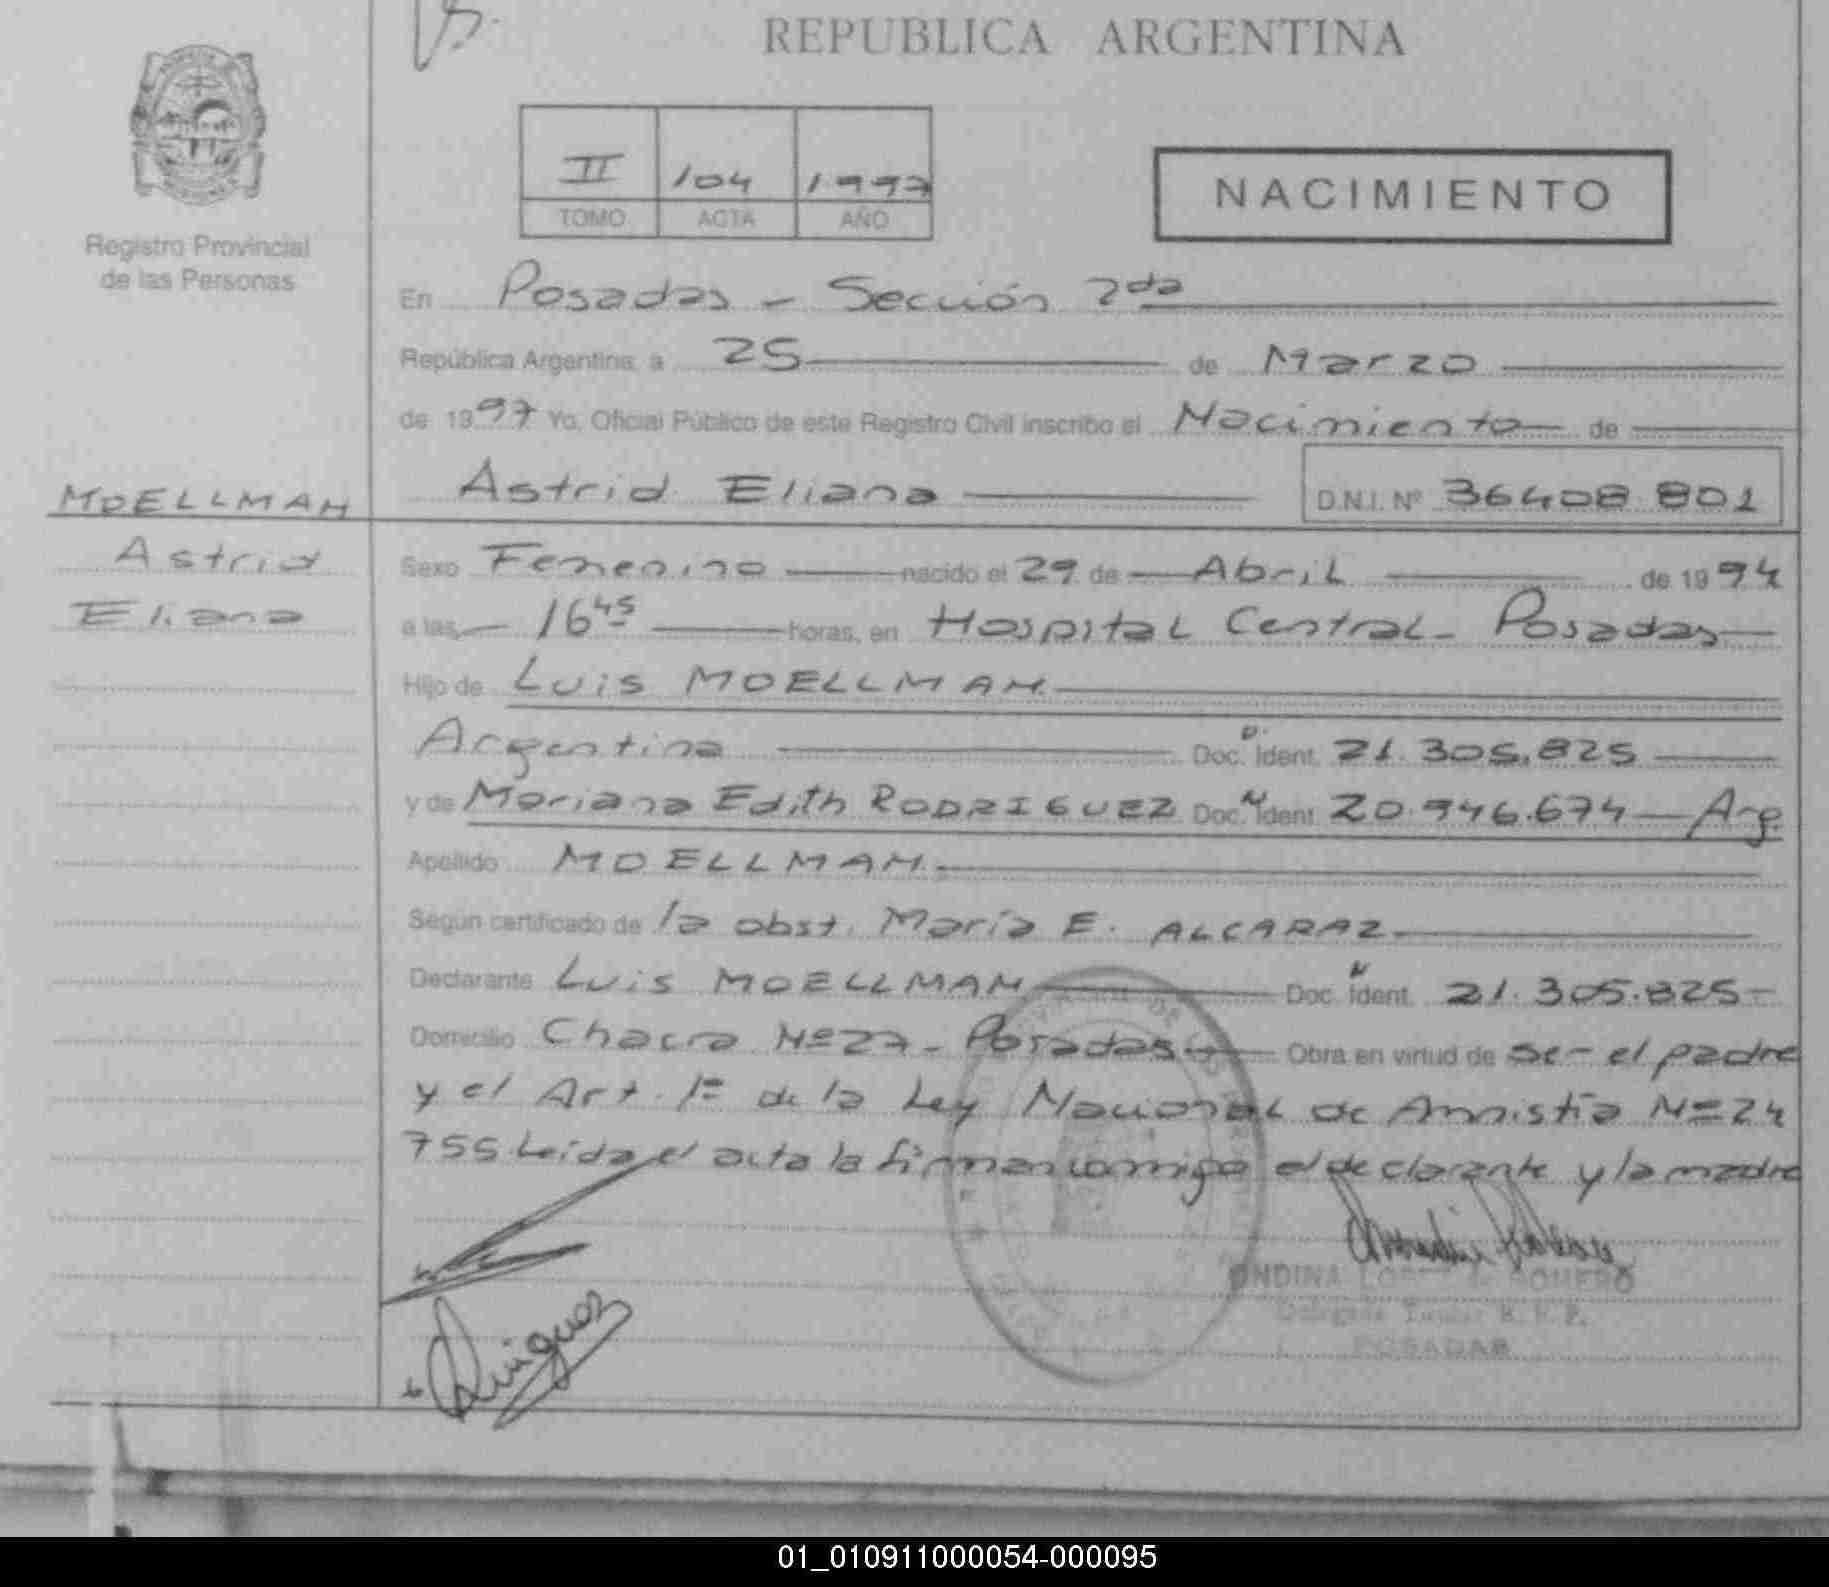 REPUBLICA ARGENTINA
II 104 1997
TOMO ACTA AÑO
NACIMIENTO
Registro Provincial
de las Personas
En Posadas - Sección 2da
República Argentina, a 25 de Marzo
de 1997 Yo, Oficial Público de este Registro Civil inscribo el Nacimiento de
MOELLMAN
Astrid
Eliana
Astrid Eliana D.N.I. Nº 36408.801
Sexo Femenino nacido el 29 de Abril de 1994
a las 16 45 horas, en Hospital Central - Posadas
Hijo de Luis MOELLMAN
Argentina Doc. Ident. 21.305.825
y de Mariana Edith RODRIGUEZ Doc. Ident. 20.946.674 - Arg.
Apellido MOELLMAN
Según certificado de la obst. María E. ALCARAZ
Declarante Luis MOELLMAN Doc. Ident. 21.305.825
Domicilio Chacra Nº 27 - Posadas Obra en virtud de ser el padre
y el Art. 1º de la Ley Nacional de Amnistía Nº 24
755 Leída el acta la firman conmigo el declarante y la madre
ONDINA LOPEZ de ROMERO
POSADAS
01_010911000054-000095